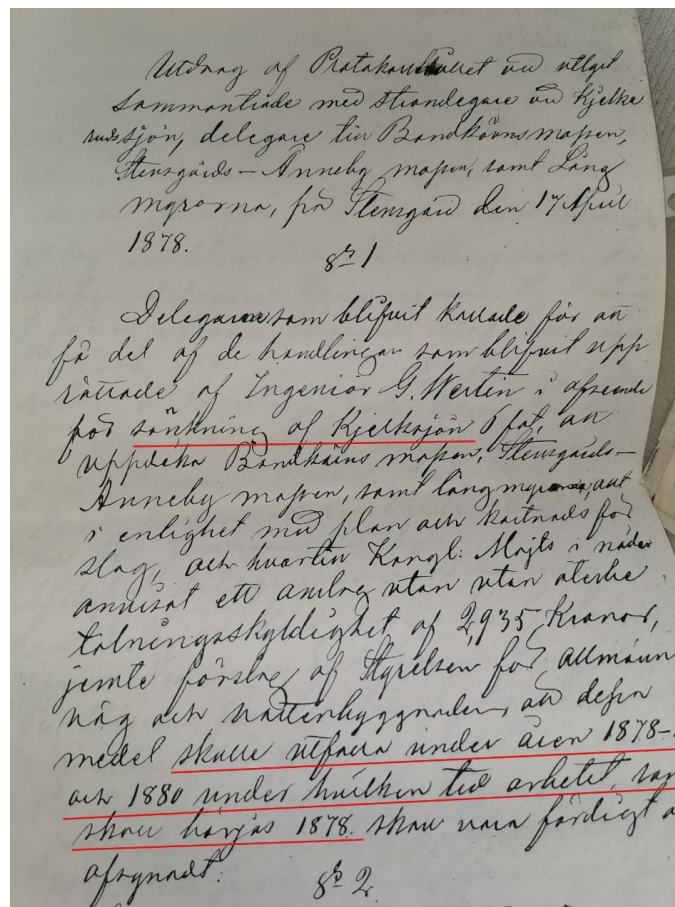 Utdrag af Protokollet vid utlyst
sammanträde med strandegare vid Kjelke
rudssjön, delegare till Bandkärnsmossen,
Stensgårds-Anneby mossen, samt Lång
myrorna, på Stensgård den 17 April
1878.
§ 1
Delegare som blifvit kallade för att
få del af de handlingar som blifvit upp
rättade af Ingeniör G. Wertin i afseende
på sänkning af Kjelksjön 6 fot, att
uppdika Bandkärns mossen, Stensgårds-
Anneby mossen, samt långmyrorna, allt
i enlighet med plan och kostnads för
slag, och hvartill Kongl: Majts i nåder
anvisat ett anslag utan utan återbe
talningsskyldighet af 2,935 Kronor,
jemte förslag af Styrelsen för Allmänn
väg och vattenbyggnader, att dessa
medel skulle utfalla under åren 1878-
och 1880 under hvilken tid arbetet, som
skall börjas 1878. skall vara färdigt o
afsynadt.
§ 2